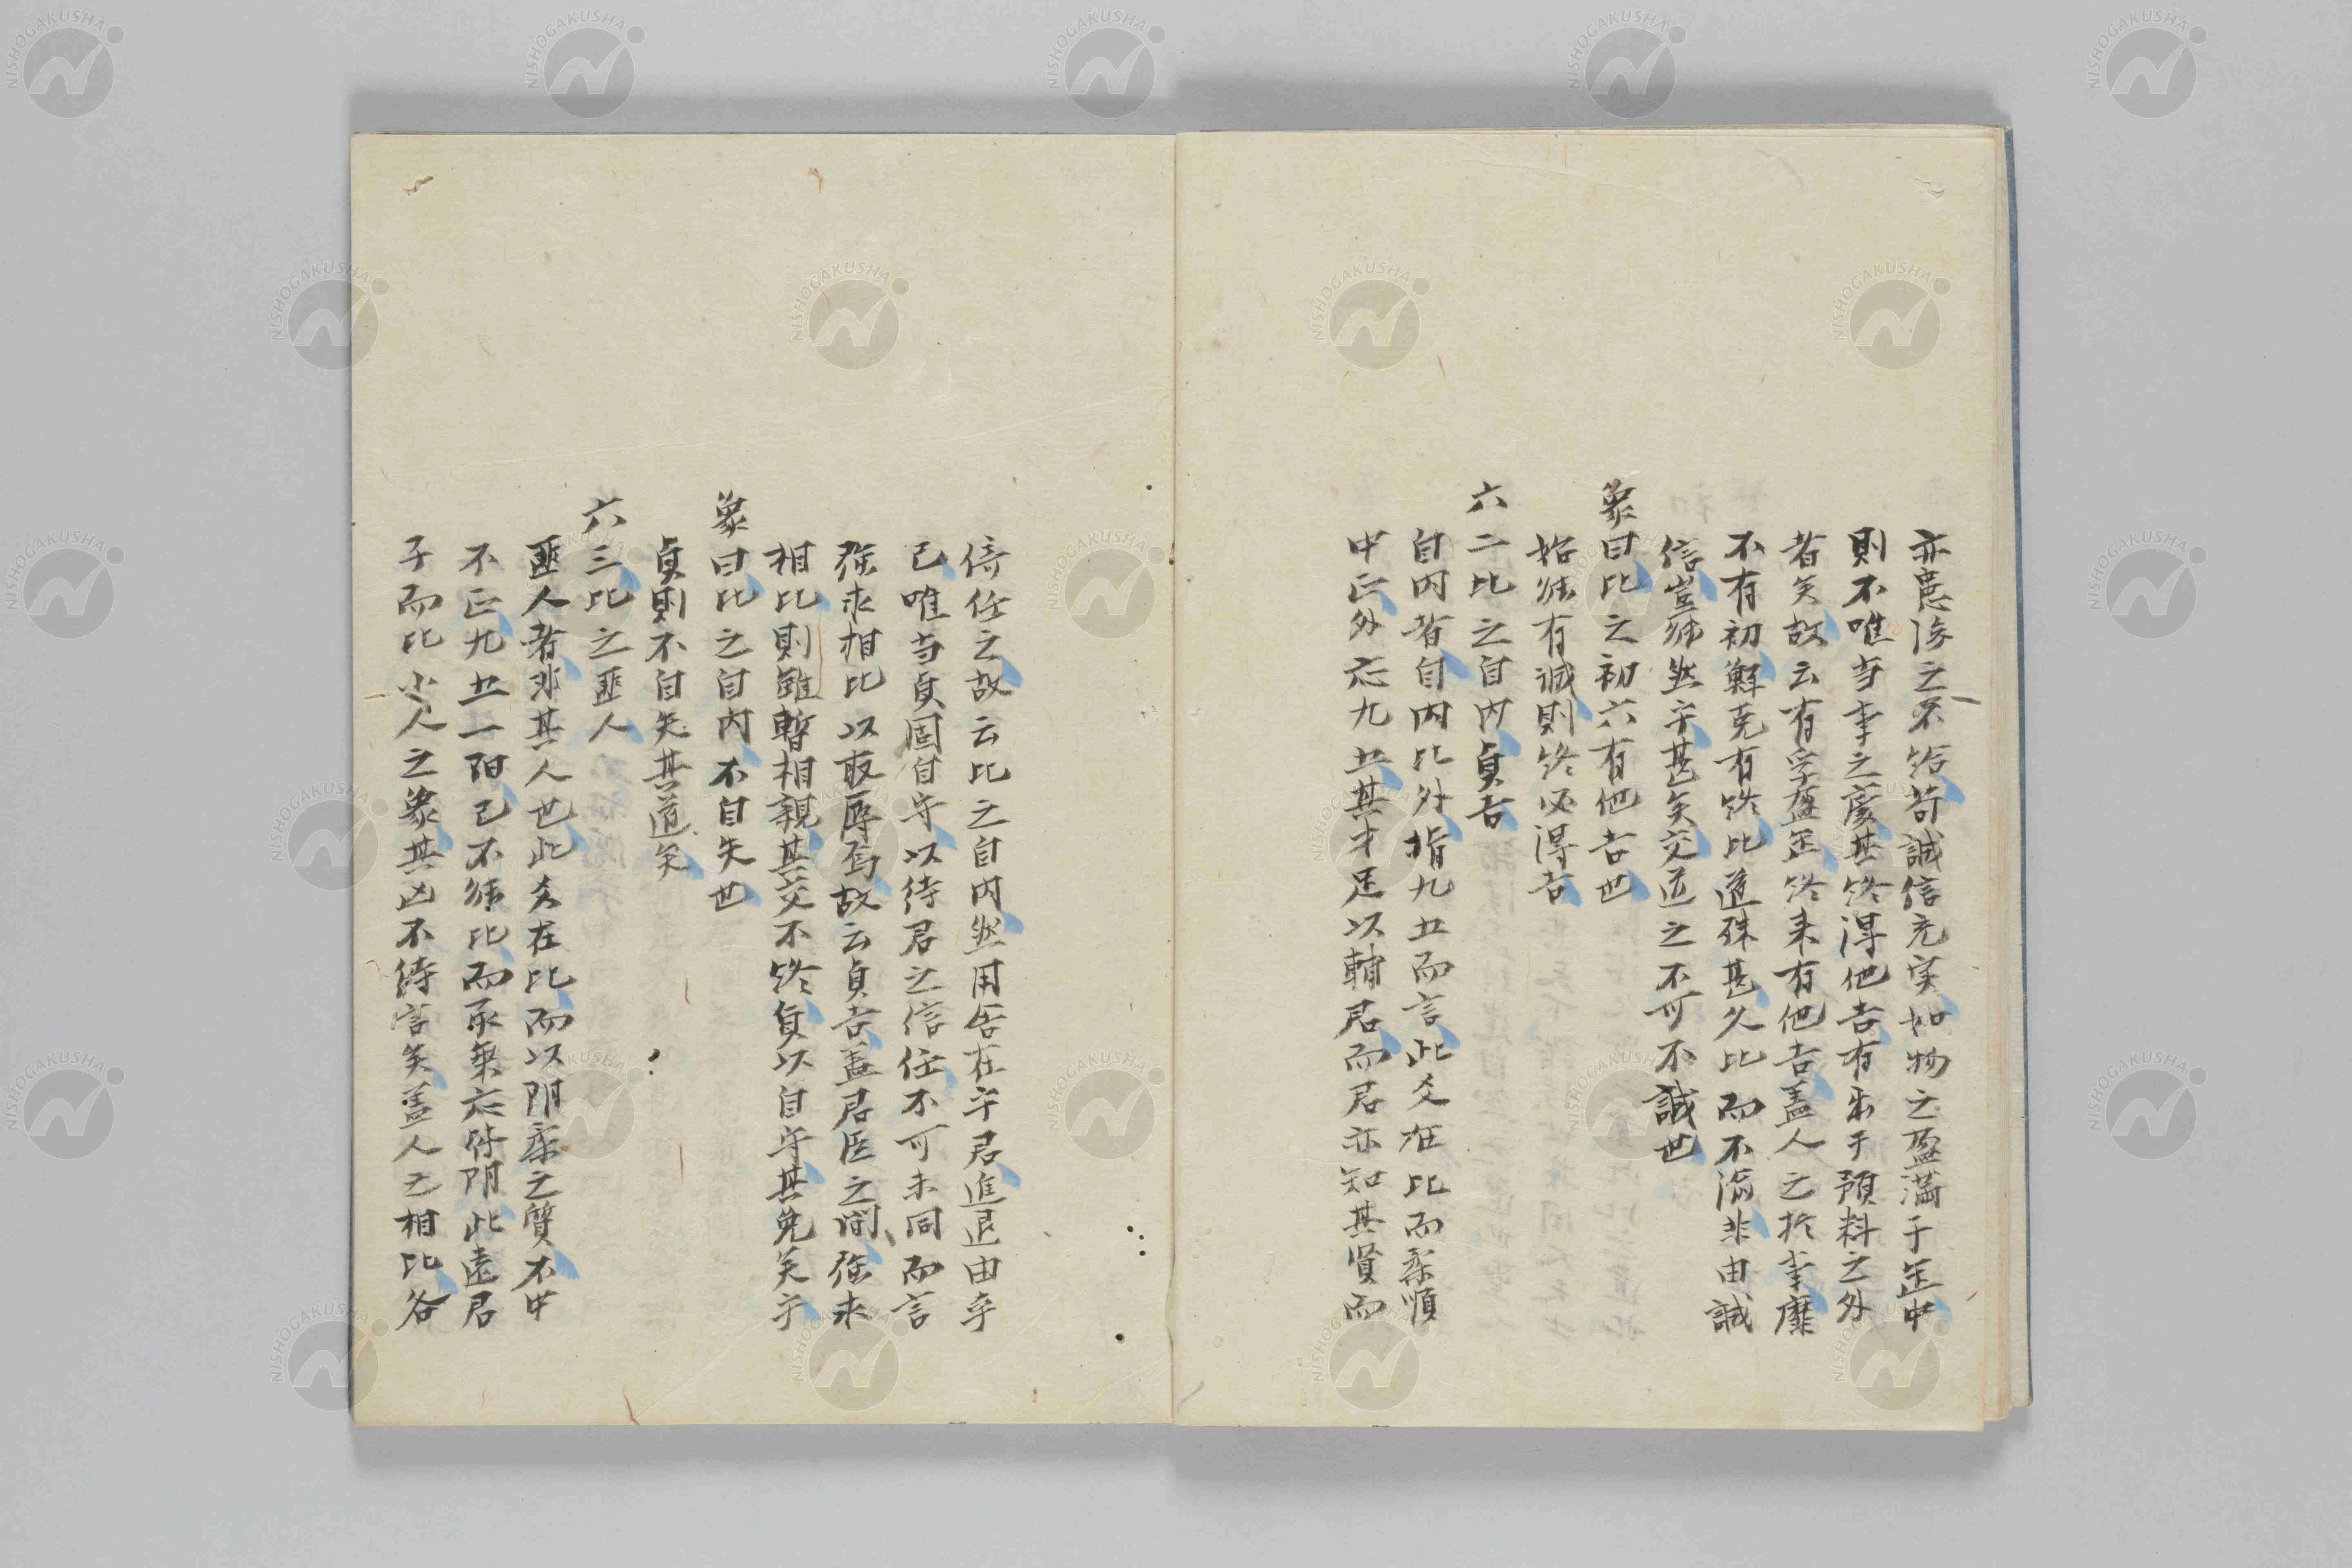 亦慮後之不給苟誠信充実如物之盈滿于缶中
則不唯当事之處其終得他吉有出于預料之外
者矣故云有孚盈缶終来有他吉盖人之於事靡
不有初鮮克有終比道殊甚久比而不渝非由誠
信豈能然乎甚矣交道之不可不誠也
象曰比之初六有他吉也
始能有誠則終必得吉
六二比之自内貞吉
自内者自内比外指九五而言此爻在比而柔順
中正外応九五其才足以輔君而君亦知其賢而
倚任之故云比之自内然用舍在乎君進退由乎
己唯当貞固自守以待君之信任不可未同而言
強求相比以取辱焉故云貞吉盖君臣之間強求
相比則雖暫相親其交不終貞以自守其免矣乎
象曰比之自内不自失也
貞則不自失其道矣
六三比之匪人
匪人者非其人也此爻在比而以阴柔之質不中
不正九五一阳己不能比而承乗応俱阴此遠君
子而比小人之象其凶不待言矣盖人之相比各
NISHOGAKUSHA